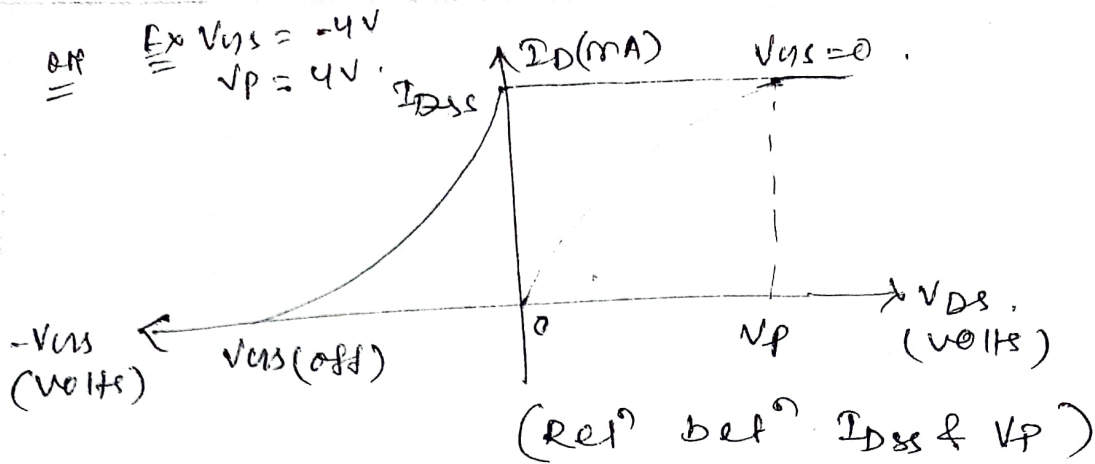 or Ex VGS = -4V
VP = 4V.
ID(mA)
VGS = 0.
IDSS
-VGS
(volts)
VGS(off)
0
VP
VDS.
(volts)
(Relⁿ betⁿ IDSS & VP)